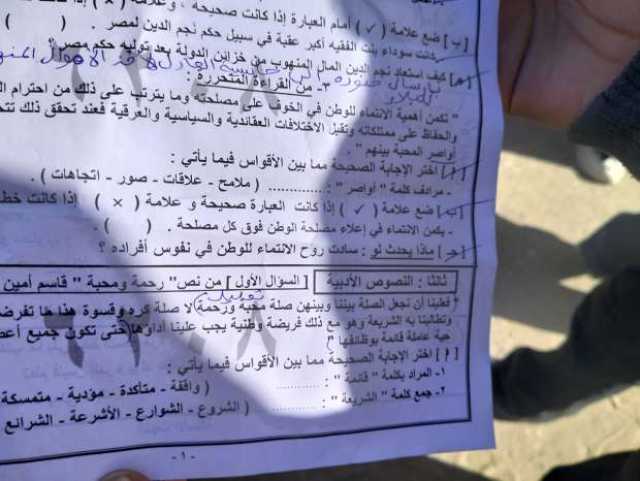 [ب] ضع علامة ( ✓ ) أمام العبارة إذا كانت صحيحة ، وعلامة ( × )
كانت سوداء بنت الفقيه أكبر عقبة في سبيل حكم نجم الدين لمصر . (
[ج] كيف استعاد نجم الدين المال المنهوب من خزائن الدولة بعد توليه حكم مصر ؟
٣- من القراءة المتحررة :
" تكمن أهمية الانتماء للوطن في الخوف على مصلحته وما يترتب على ذلك من احترام
والحفاظ على ممتلكاته وتقبل الاختلافات العقائدية والسياسية والعرقية فعند تحقق ذلك
أواصر المحبة بينهم "
[أ] اختر الإجابة الصحيحة مما بين الأقواس فيما يأتي :
- مرادف كلمة " أواصر " : .............. ( ملامح - علاقات - صور - اتجاهات ) .
[ب] ضع علامة ( ✓ ) إذا كانت العبارة صحيحة و علامة ( × ) إذا كانت
- يكمن الانتماء في إعلاء مصلحة الوطن فوق كل مصلحة . ( ) .
[ج] ماذا يحدث لو : سادت روح الانتماء للوطن في نفوس أفراده ؟
ثالثا : النصوص الأدبية [ السؤال الأول ] من نص " رحمة ومحبة " قاسم أمين
" فعلينا أن نجعل الصلة بيننا وبينهن صلة محبة ورحمة لا صلة كره وقسوة هذا ما
وتطالبنا به الشريعة وهو مع ذلك فريضة وطنية يجب علينا أداؤها حتى تكون جميع
حية عاملة قائمة بوظائفها "
[أ] اختر الإجابة الصحيحة مما بين الأقواس فيما يأتي :
١- المراد بكلمة " قائمة " : ............ ( واقفة - متأكدة - مؤدية - متمسكة
٢- جمع كلمة " الشريعة " : ............ ( الشروع - الشوارع - الأشرعة - الشرائع
- ١ -